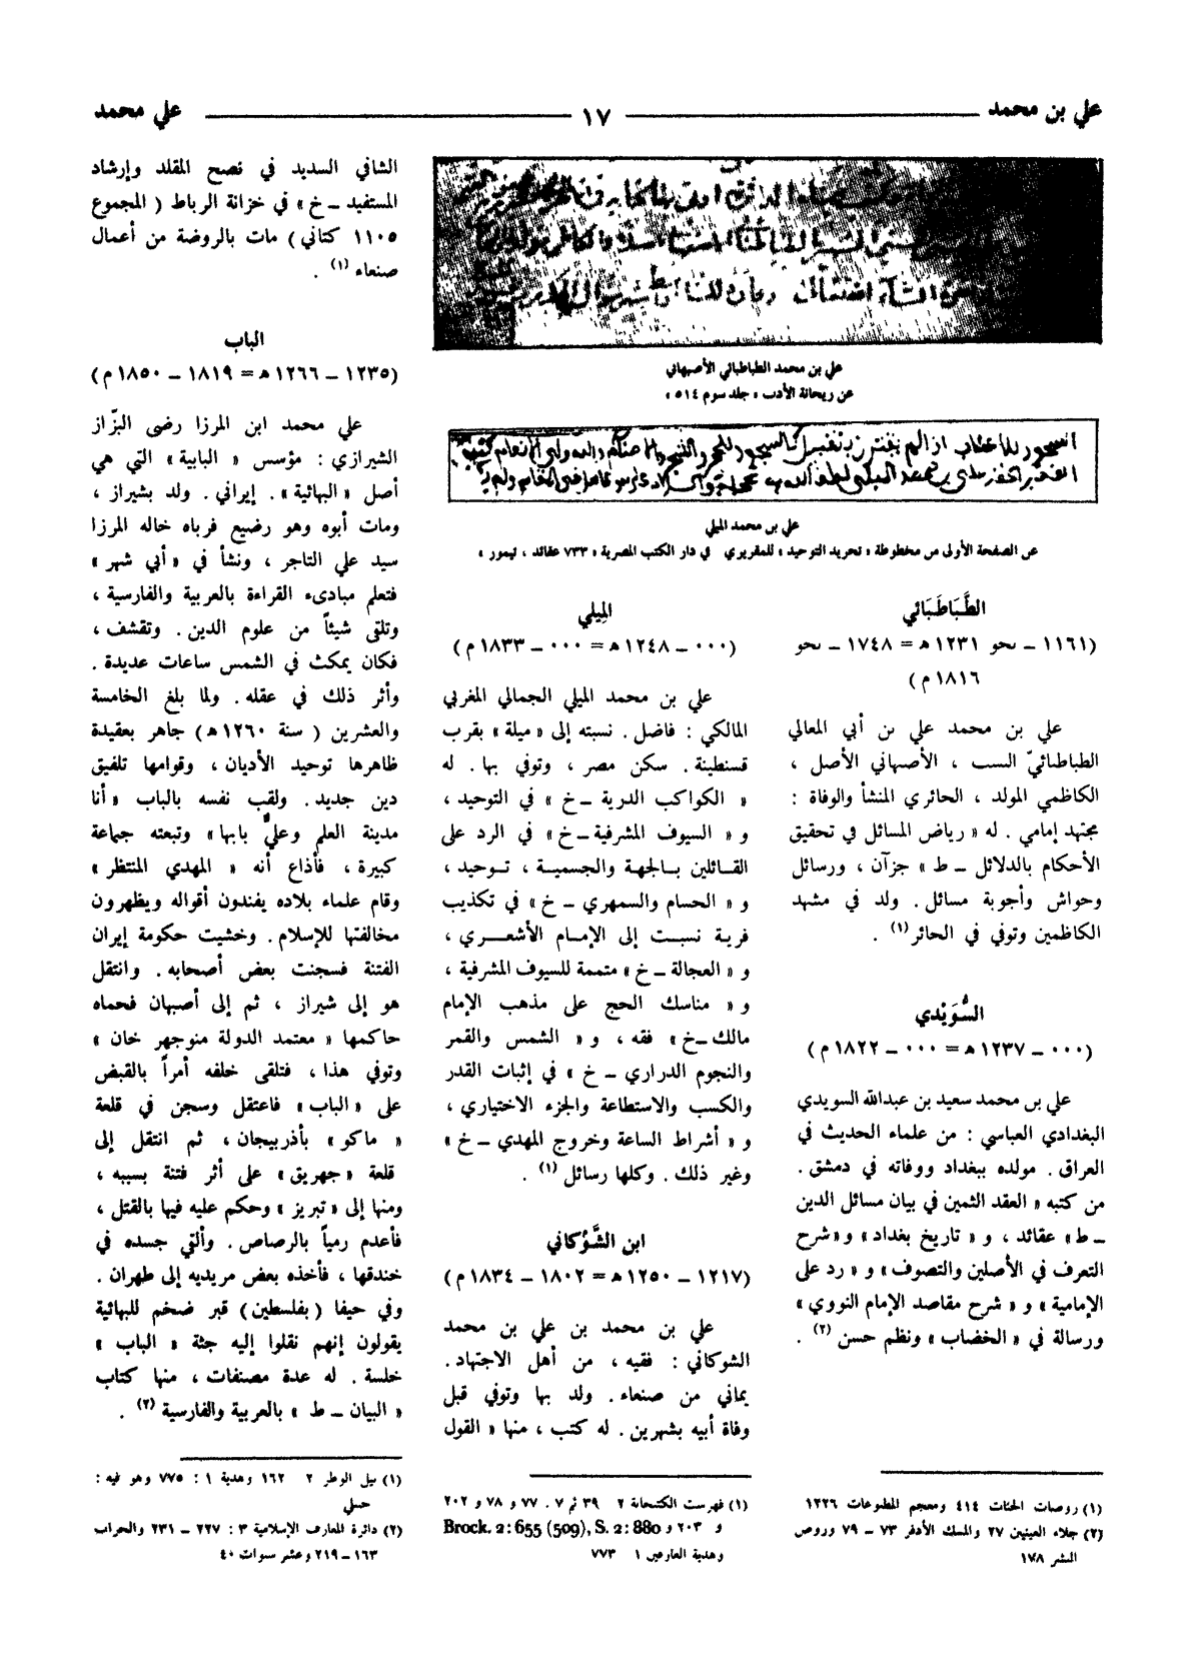 علي بن محمد
١٧
علي محمد
علي بن محمد الطباطبائي الأصبهاني
عن ريحانة الأدب « جلد سوم ٥١٤ »
علي بن محمد الميلي
عن الصفحة الأولى من مخطوطة « تحريد التوحيد » للمقريري في دار الكتب المصرية « ٧٣٣ عقائد ، تيمور »
الطَّبَاطَبَائي
(١١٦١ ــ نحو ١٢٣١ هـ = ١٧٤٨ ــ نحو
١٨١٦ م)
علي بن محمد علي بن أبي المعالي
الطباطبائيّ النسب ، الأصبهاني الأصل ،
الكاظمي المولد ، الحائري المنشأ والوفاة :
مجتهد إمامي . له « رياض المسائل في تحقيق
الأحكام بالدلائل ــ ط » جزآن ، ورسائل
وحواش وأجوبة مسائل . ولد في مشهد
الكاظمين وتوفي في الحائر (١) .
السُّوَيْدي
(٠٠٠ ــ ١٢٣٧ هـ = ٠٠٠ ــ ١٨٢٢ م)
علي بن محمد سعيد بن عبدالله السويدي
البغدادي العباسي : من علماء الحديث في
العراق . مولده ببغداد ووفاته في دمشق .
من كتبه « العقد الثمين في بيان مسائل الدين
ــ ط » عقائد ، و « تاريخ بغداد » و « شرح
التعرف في الأصلين والتصوف » و « رد على
الإمامية » و « شرح مقاصد الإمام النووي »
ورسالة في « الخضاب » ونظم حسن (٢) .
(١) روضات الجنات ٤١٤ ومعجم المطبوعات ١٢٢٦
(٢) جلاء العينين ٢٧ والمسك الأذفر ٧٣ ــ ٧٩ وروض
النشر ١٧٨
الِميلي
(٠٠٠ ــ ١٢٤٨ هـ = ٠٠٠ ــ ١٨٣٣ م)
علي بن محمد الميلي الجمالي المغربي
المالكي : فاضل . نسبته إلى « ميلة » بقرب
قسنطينة . سكن مصر ، وتوفي بها . له
« الكواكب الدرية ــ خ » في التوحيد ،
و « السيوف المشرفية ــ خ » في الرد على
القائلين بالجهة والجسمية ، توحيد ،
و « الحسام والسمهري ــ خ » في تكذيب
فرية نسبت إلى الإمام الأشعري ،
و « العجالة ــ خ » متممة للسيوف المشرفية ،
و « مناسك الحج على مذهب الإمام
مالك ــ خ » فقه ، و « الشمس والقمر
والنجوم الدراري ــ خ » في إثبات القدر
والكسب والاستطاعة والجزء الاختياري ،
و « أشراط الساعة وخروج المهدي ــ خ »
وغير ذلك . وكلها رسائل (١) .
ابن الشَّوْكاني
(١٢١٧ ــ ١٢٥٠ هـ = ١٨٠٢ ــ ١٨٣٤ م)
علي بن محمد بن علي بن محمد
الشوكاني : فقيه ، من أهل الاجتهاد .
يماني من صنعاء . ولد بها وتوفي قبل
وفاة أبيه بشهرين . له كتب ، منها « القول
(١) فهرست الكتبخانة ٢ ٣٩ ثم ٧ . ٧٧ و ٧٨ و ٢٠٢
و ٢٠٣ و Brock. 2 : 655 (509), S. 2 : 880
وهدية العارفين ١ ٧٧٣
الشافي السديد في نصح المقلد وإرشاد
المستفيد ــ خ » في خزانة الرباط ( المجموع
١١٠٥ كتاني ) مات بالروضة من أعمال
صنعاء (١) .
الباب
(١٢٣٥ ــ ١٢٦٦ هـ = ١٨١٩ ــ ١٨٥٠ م)
علي محمد ابن المرزا رضى البزّاز
الشيرازي : مؤسس « البابية » التي هي
أصل « البهائية » . إيراني . ولد بشيراز ،
ومات أبوه وهو رضيع فرباه خاله المرزا
سيد علي التاجر ، ونشأ في « أبي شهر »
فتعلم مبادىء القراءة بالعربية والفارسية ،
وتلقى شيئاً من علوم الدين . وتقشف ،
فكان يمكث في الشمس ساعات عديدة .
وأثر ذلك في عقله . ولما بلغ الخامسة
والعشرين ( سنة ١٢٦٠ هـ ) جاهر بعقيدة
ظاهرها توحيد الأديان ، وقوامها تلفيق
دين جديد . ولقب نفسه بالباب « أنا
مدينة العلم وعليٌّ بابها » وتبعته جماعة
كبيرة ، فأذاع أنه « المهدي المنتظر »
وقام علماء بلاده يفندون أقواله ويظهرون
مخالفتها للإسلام . وخشيت حكومة إيران
الفتنة فسجنت بعض أصحابه . وانتقل
هو إلى شيراز ، ثم إلى أصبهان فحماه
حاكمها « معتمد الدولة منوجهر خان »
وتوفي هذا ، فتلقى خلفه أمراً بالقبض
على « الباب » فاعتقل وسجن في قلعة
« ماكو » بأذربيجان ، ثم انتقل إلى
قلعة « جهريق » على أثر فتنة بسببه ،
ومنها إلى « تبريز » وحكم عليه فيها بالقتل ،
فأعدم رمياً بالرصاص . وألقي جسده في
خندقها ، فأخذه بعض مريديه إلى طهران .
وفي حيفا ( بفلسطين ) قبر ضخم للبهائية
يقولون إنهم نقلوا إليه جثة « الباب »
خلسة . له عدة مصنفات ، منها كتاب
« البيان ــ ط » بالعربية والفارسية (٢) .
(١) نيل الوطر ٢ ١٦٢ وهدية ١ : ٧٧٥ وهو فيه :
حنبلي
(٢) دائرة المعارف الإسلامية ٣ : ٢٢٧ ــ ٢٣١ والحراب
١٦٣ ــ ٢١٩ وعشر سنوات ٤٠